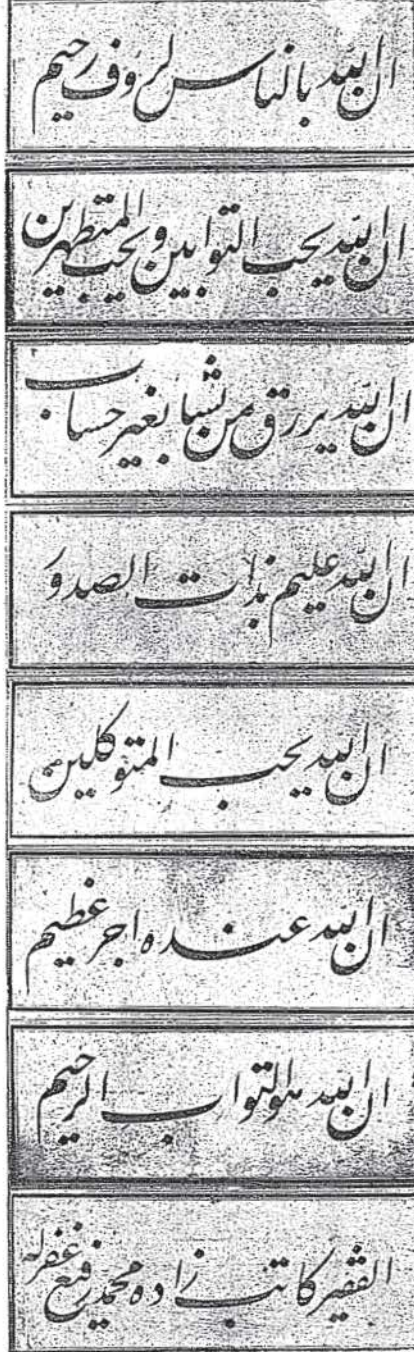 ان الله بالناس لروف رحيم
ان الله يحب التوابين ويحب المتطهرين
ان الله يرزق من يشا بغير حساب
ان الله عليم بذات الصدور
ان الله يحب المتوكلين
ان الله عنده اجر عظيم
ان الله هو التواب الرحيم
الفقير كاتب زاده محمد رفيع غفرله